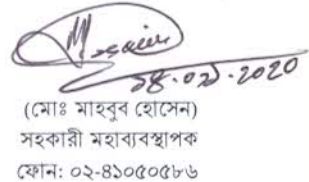 ২৪.০৯.২০২০
(মোঃ মাহবুব হোসেন)
সহকারী মহাব্যবস্থাপক
ফোন: ০২-৪১০৫০৫৮৬